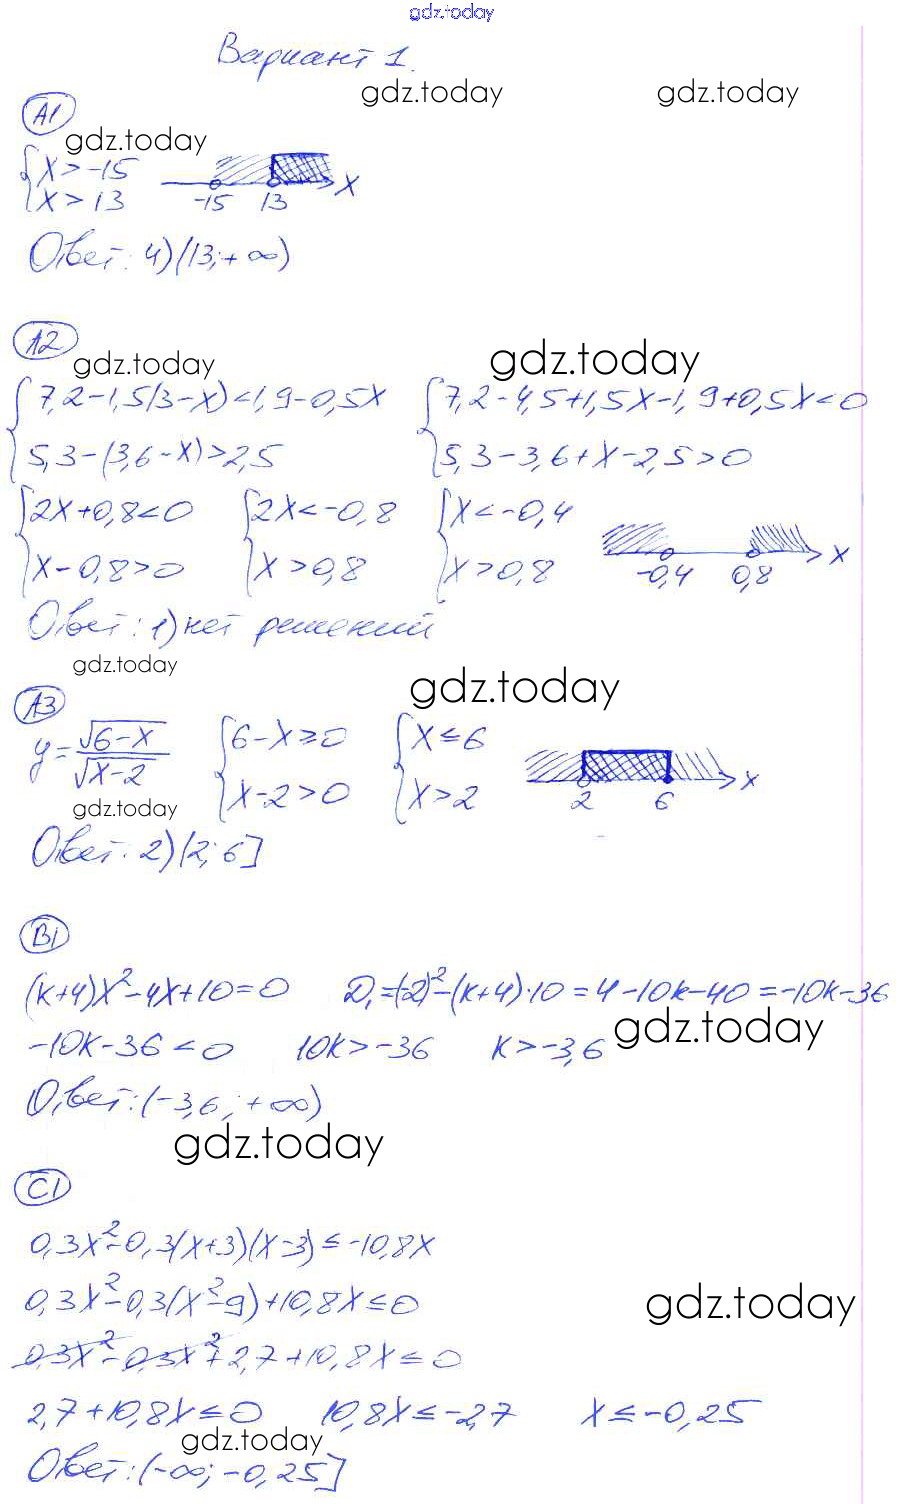 gdz.today
Вариант 1.
gdz.today gdz.today
A1
gdz.today
{x>-15
{x>13
-15 13 x
Ответ: 4)(13;+∞)
A2
gdz.today gdz.today
{7,2-1,5(3-x)<1,9-0,5x {7,2-4,5+1,5x-1,9+0,5x<0
{5,3-(3,6-x)>2,5 {5,3-3,6+x-2,5>0
{2x+0,8<0 {2x<-0,8 {x<-0,4
{x-0,8>0 {x>0,8 {x>0,8
-0,4 0,8 x
Ответ: 1) нет решений
gdz.today gdz.today
A3
y=√(6-x)/√(x-2) {6-x≥0 {x≤6
{x-2>0 {x>2
2 6 x
gdz.today
Ответ: 2)(2;6]
B1
(k+4)x²-4x+10=0 D₁=(-2)²-(k+4)·10=4-10k-40=-10k-36
-10k-36<0 10k>-36 k>-3,6 gdz.today
Ответ: (-3,6;+∞)
gdz.today
C1
0,3x²-0,3(x+3)(x-3)≤-10,8x
0,3x²-0,3(x²-9)+10,8x≤0
gdz.today
0,3x²-0,3x²+2,7+10,8x≤0
2,7+10,8x≤0 10,8x≤-2,7 x≤-0,25
gdz.today
Ответ: (-∞;-0,25]